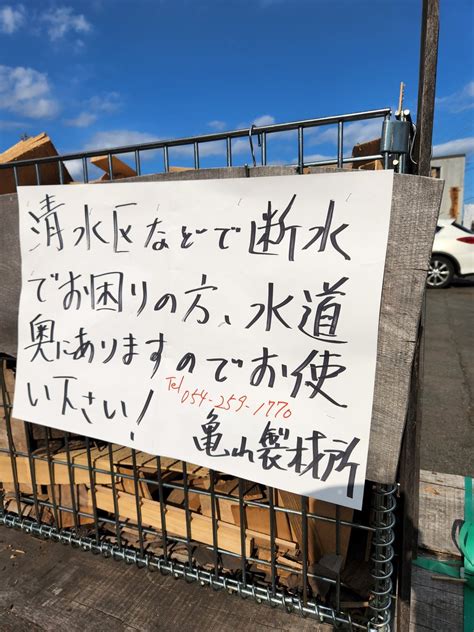 清水区などで断水
でお困りの方、水道
奥にありますのでお使
い下さい!
Tel 054-259-1770
亀山製材所